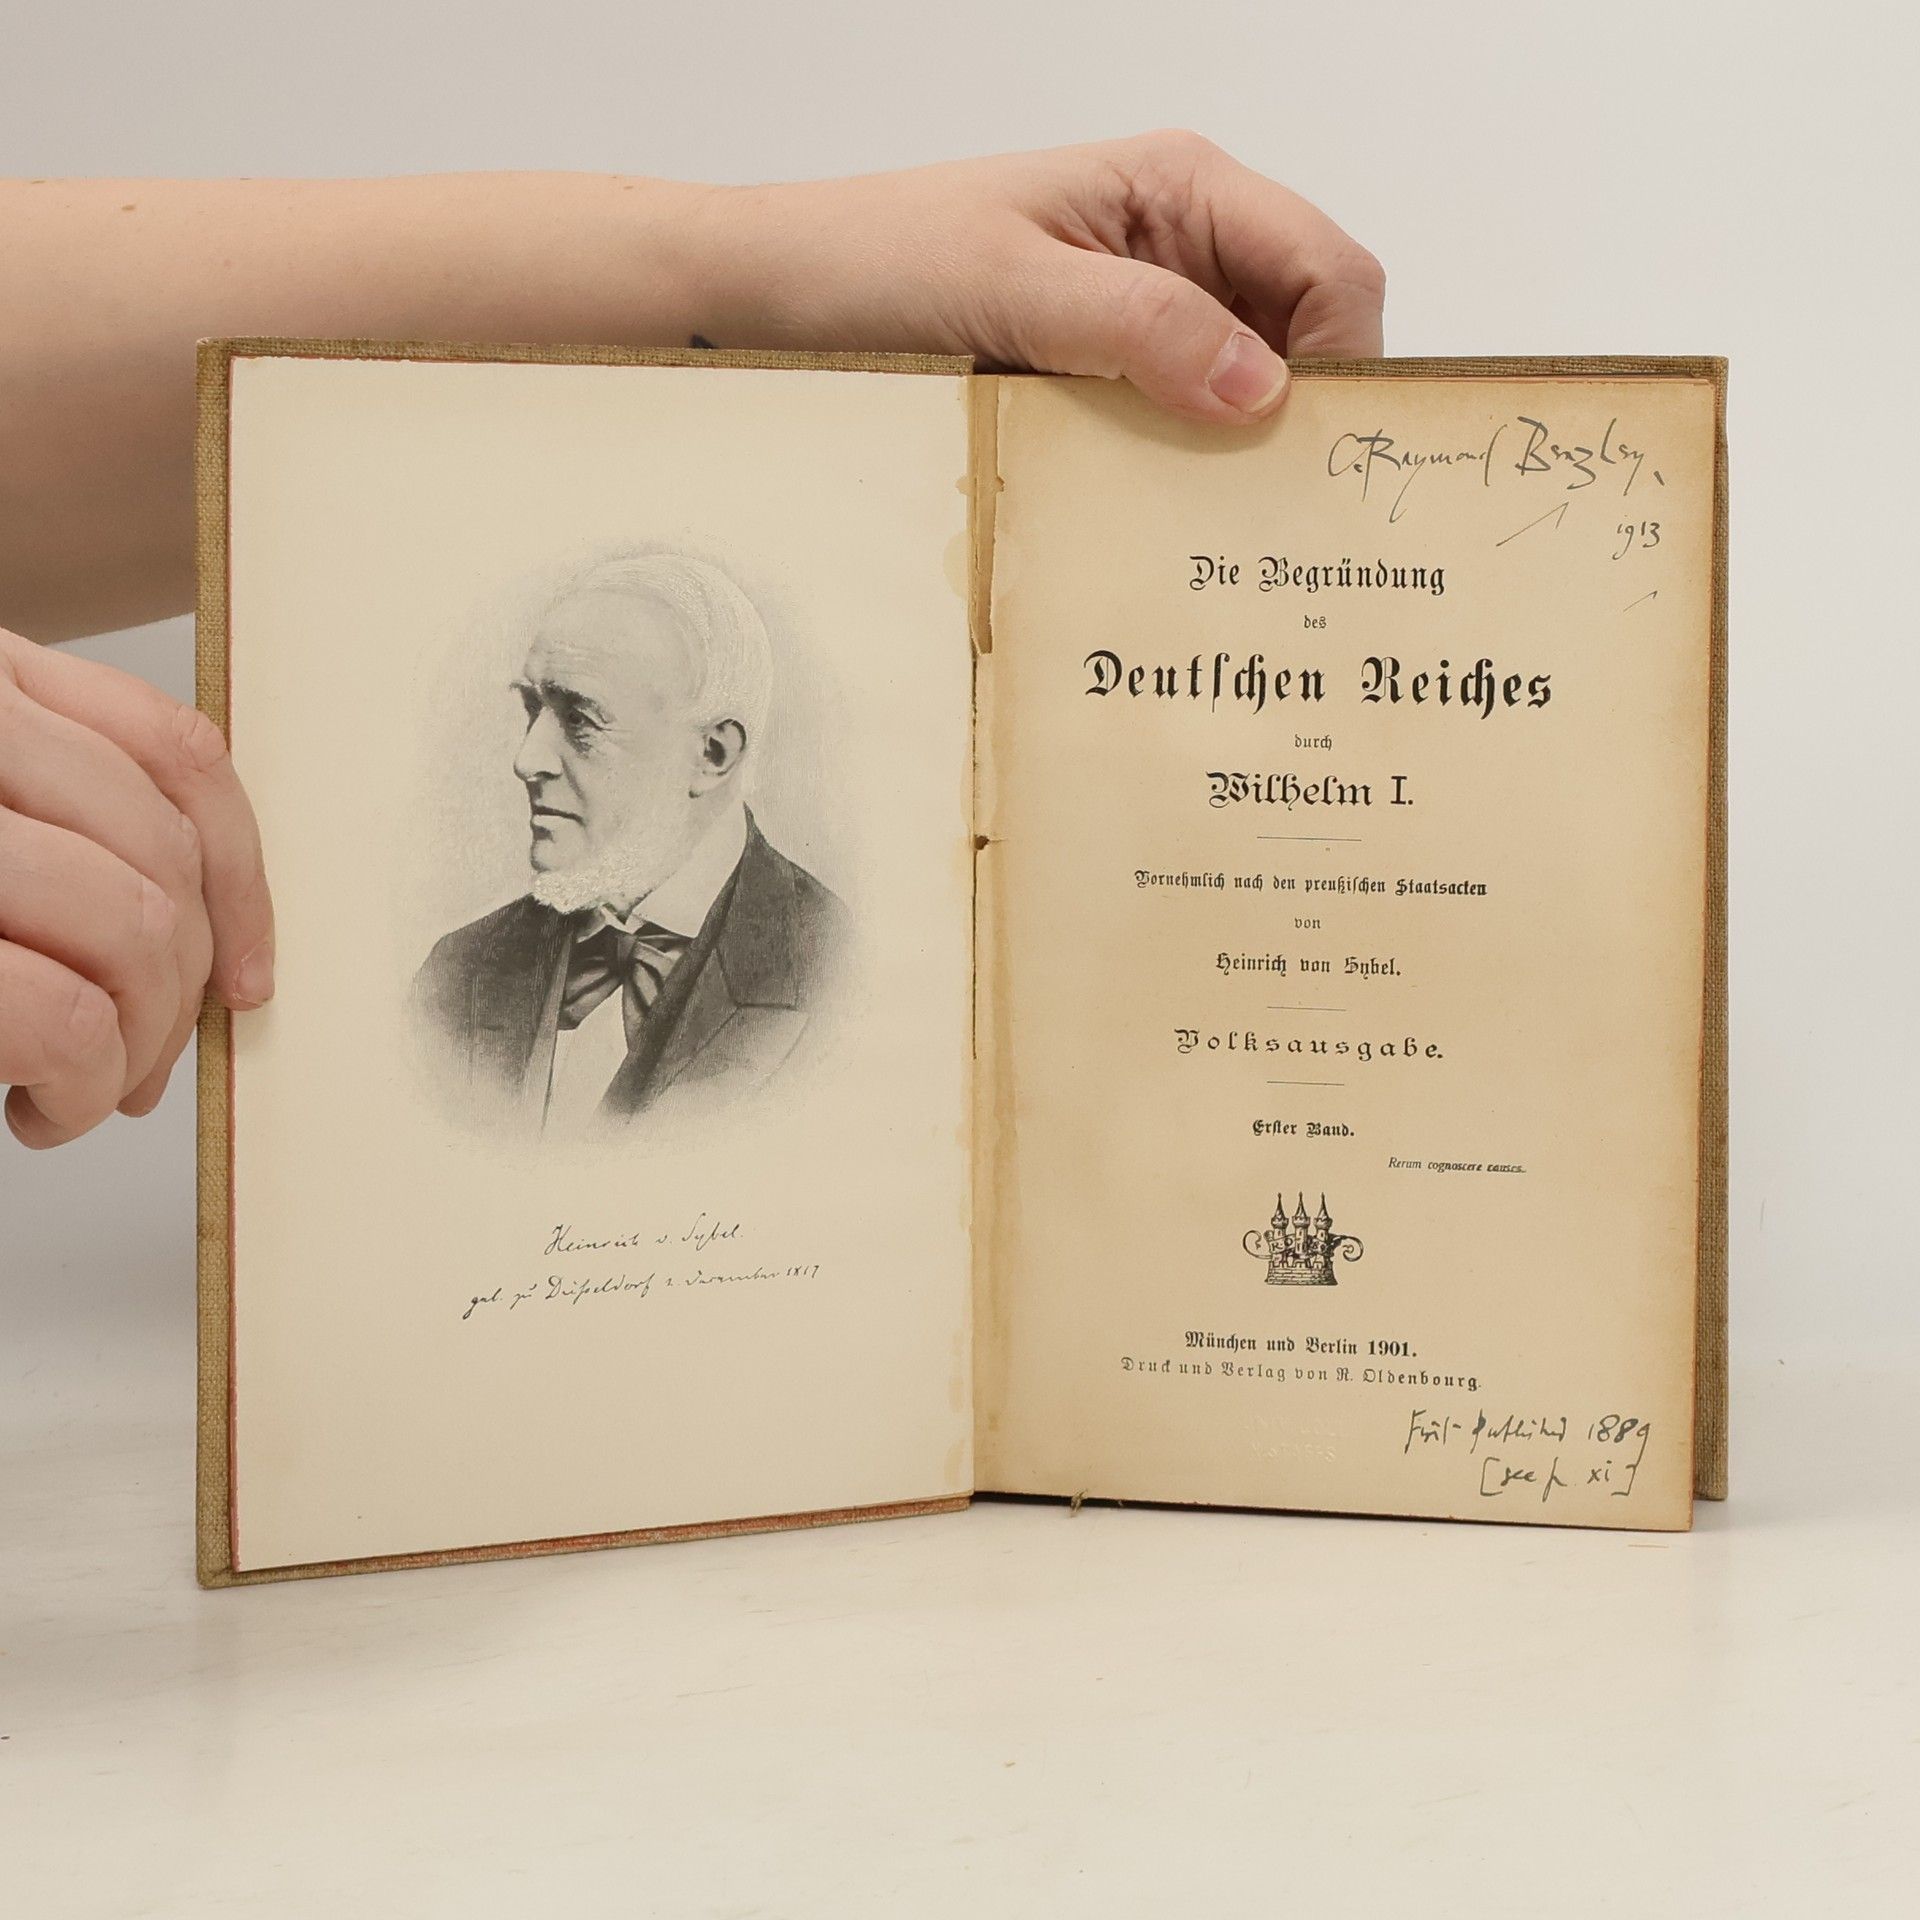 Heinrich v. Sybel.
geb. zu Düsseldorf 2. December 1817
C. Raymond Beazley,
1913
Die Begründung
des
Deutſchen Reiches
durch
Wilhelm I.
Vornehmlich nach den preußiſchen Staatsacten
von
Heinrich von Sybel.
Volksausgabe.
Erſter Band.
Rerum cognoscere causas.
München und Berlin 1901.
Druck und Verlag von R. Oldenbourg.
First published 1889
[see p. xi]